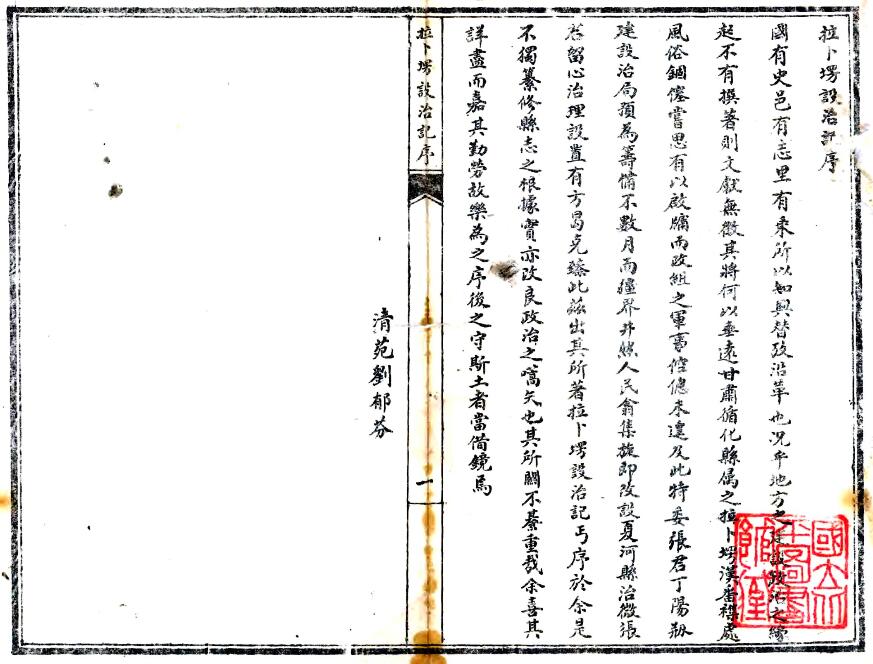 拉卜塄設治記序
國有史邑有志里有乘所以知興替攷沿革也況乎地方之建設政治之緣
起不有撰著則文獻無徵其將何以垂遠甘肅循化縣屬之拉卜塄漢番襍處
風俗錮僿嘗思有以啟牖而政組之軍事倥傯未遑及此特委張君丁陽刱
建設治局預為籌備不數月而疆界井然人民翕集旋即改設夏河縣治微張
君留心治理設置有方曷克臻此茲出其所著拉卜塄設治記丐序於余是
不獨纂修縣志之根據實亦改良政治之嚆矢也其所關不綦重哉余喜其
詳盡而嘉其勤勞故樂為之序後之守斯土者當借鏡焉
拉卜塄設治記序
一
清苑劉郁芬
國立北平圖書館藏